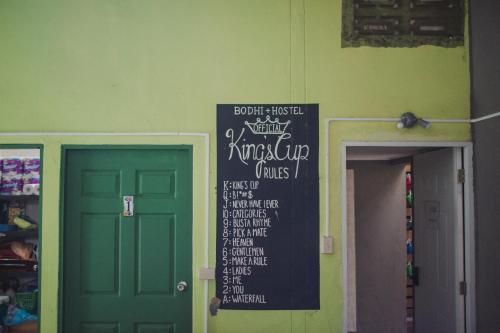 BODHI + HOSTEL
OFFICIAL
King's Cup
RULES
K: KING'S CUP
Q: B!**#$
J: NEVER HAVE I EVER
10: CATEGORIES
9: BUSTA RHYME
8: PICK A MATE
7: HEAVEN
6: GENTLEMEN
5: MAKE A RULE
4: LADIES
3: ME
2: YOU
A: WATERFALL
1